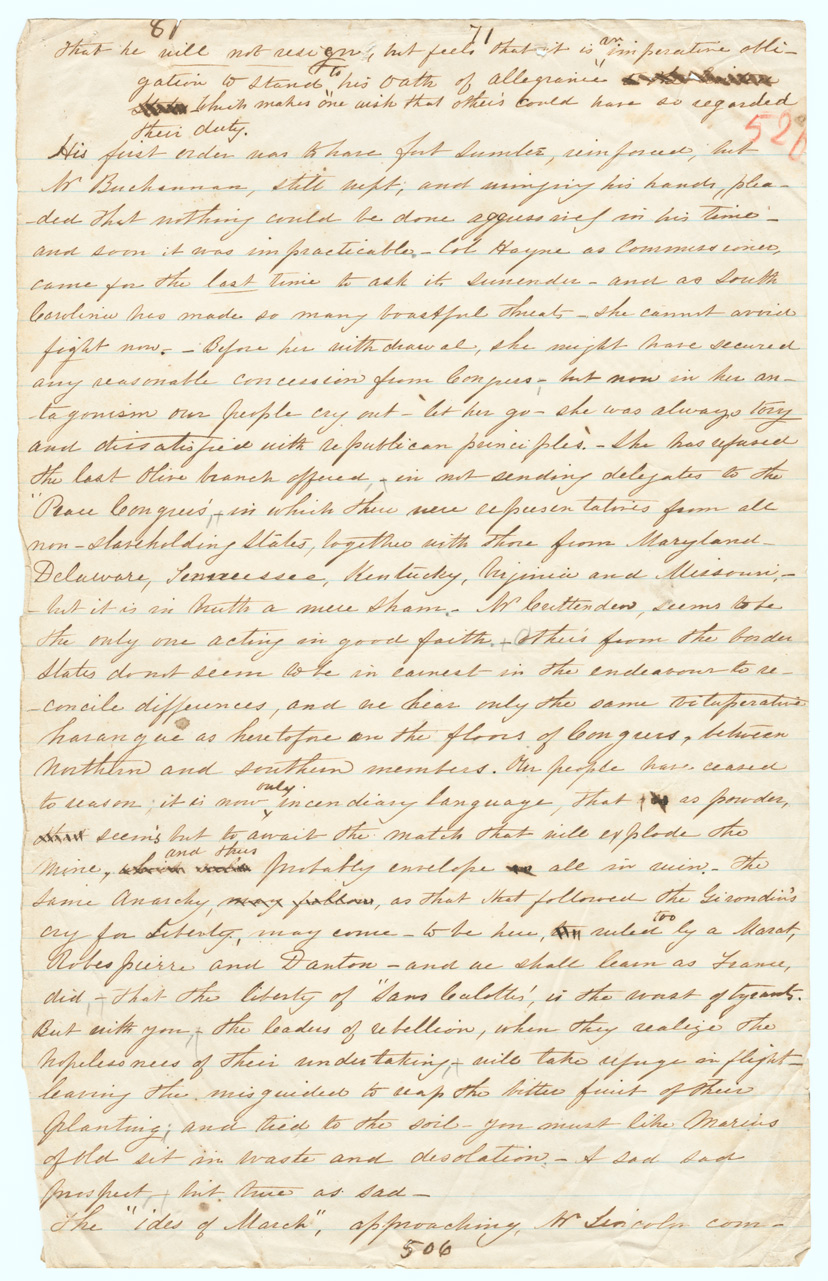 81 71
that he will not resign, but feels that it is an imperative obli-
gation to stand to his oath of allegiance,
which makes one wish that others could have so regarded
their duty.
520
His first order was to have fort Sumter, reinforced, but
Mr Buchannan, still wept, and wringing his hands, plea-
-ded that nothing could be done aggressively in his time -
and soon it was impracticable - Col Hayne as Commissioner,
came for the last time to ask its surrender - and as South
Carolina has made so many boastful threats - she cannot avoid
fight now. - Before her withdrawal, she might have secured
any reasonable concession from Congress - but now in her an-
-tagonism our people cry out - 'let her go - she was always tory
and dissatisfied with republican principles'. - She has refused
the last Olive branch offered, - in not sending delegates to the
"Peace Congress', - in which there were representatives from all
non-slaveholding States, together with those from Maryland -
Delaware, Tennessee, Kentucky, Virginia and Missouri, -
- but it is in truth a mere sham. - Mr Crittenden, seems to be
the only one acting in good faith. - Others from the border
States do not seem to be in earnest in the endeavour to re-
-concile differences, and we hear only the same vituperative
harangue as heretofore on the floors of Congress, between
Northern and southern members. Our people have ceased
to reason; it is now only incendiary language, that as powder,
seems but to await the match that will explode the
mine, and thus probably envelope all in ruin. - The
same Anarchy, may follow, as that that followed the Girondin's
cry for Liberty, may come - to be here, ruled too by a Marat,
Robespierre and Danton - and we shall learn as France,
did - that the liberty of "Sans Culotte', is the worst of tyrants.
But with you, - the leaders of rebellion, when they realize the
hopelessness of their undertaking, - will take refuge in flight -
leaving the misguided to reap the bitter fruit of their
planting; and tied to the soil - you must like Marius
of old sit in waste and desolation - A sad sad
prospect, - but true as sad -
The "ides of March", approaching, Mr Lincoln com-
506